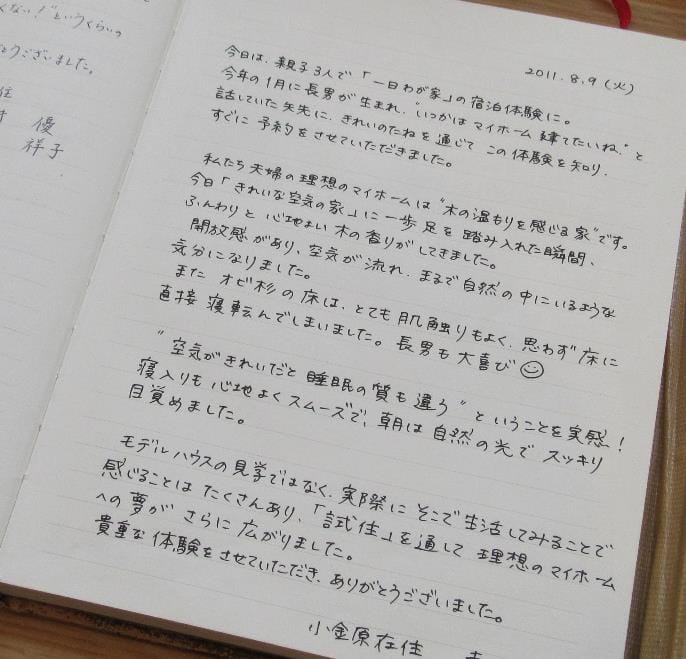 くない！”というくらいの
とうございました。
住
村 優
祥子
2011.8.9(火)
今日は、親子3人で「一日わが家」の宿泊体験に。
今年の1月に長男が生まれ、“いつかはマイホーム建てたいね”と
話していた矢先に、きれいのたねを通じて この体験を知り、
すぐに予約をさせていただきました。
私たち夫婦の理想のマイホームは“木の温もりを感じる家”です。
今日「きれいな空気の家」に一歩足を踏み入れた瞬間、
ふんわりと心地よい木の香りがしてきました。
開放感があり、空気が流れ、まるで自然の中にいるような
気分になりました。
また オビ杉の床は、とても肌触りもよく、思わず床に
直接寝転んでしまいました。長男も大喜び☺
“空気がきれいだと睡眠の質も違う”ということを実感！
寝入りも心地よくスムーズで、朝は自然の光でスッキリ
目覚めました。
モデルハウスの見学ではなく、実際にそこで生活してみることで
感じることはたくさんあり、「試住」を通して理想のマイホーム
への夢がさらに広がりました。
貴重な体験をさせていただき、ありがとうございました。
小金原在住